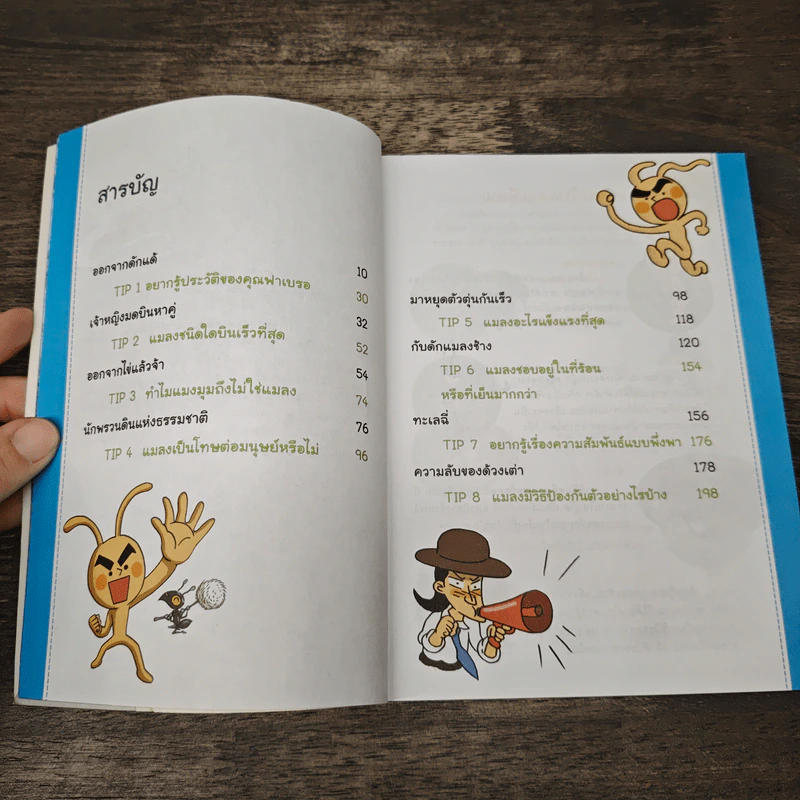 สารบัญ
ออกจากดักแด้ 10
TIP 1 อยากรู้ประวัติของคุณฟาเบรอ 30
เจ้าหญิงมดบินหาคู่ 32
TIP 2 แมลงชนิดใดบินเร็วที่สุด 52
ออกจากไข่แล้วจ้า 54
TIP 3 ทำไมแมงมุมถึงไม่ใช่แมลง 74
นักพรวนดินแห่งธรรมชาติ 76
TIP 4 แมลงเป็นโทษต่อมนุษย์หรือไม่ 96
มาหยุดตัวตุ่นกันเร็ว 98
TIP 5 แมลงอะไรแข็งแรงที่สุด 118
กับดักแมลงช้าง 120
TIP 6 แมลงชอบอยู่ในที่ร้อน 154
หรือที่เย็นมากกว่า
ทะเลฉี่ 156
TIP 7 อยากรู้เรื่องความสัมพันธ์แบบพึ่งพา 176
ความลับของด้วงเต่า 178
TIP 8 แมลงมีวิธีป้องกันตัวอย่างไรบ้าง 198